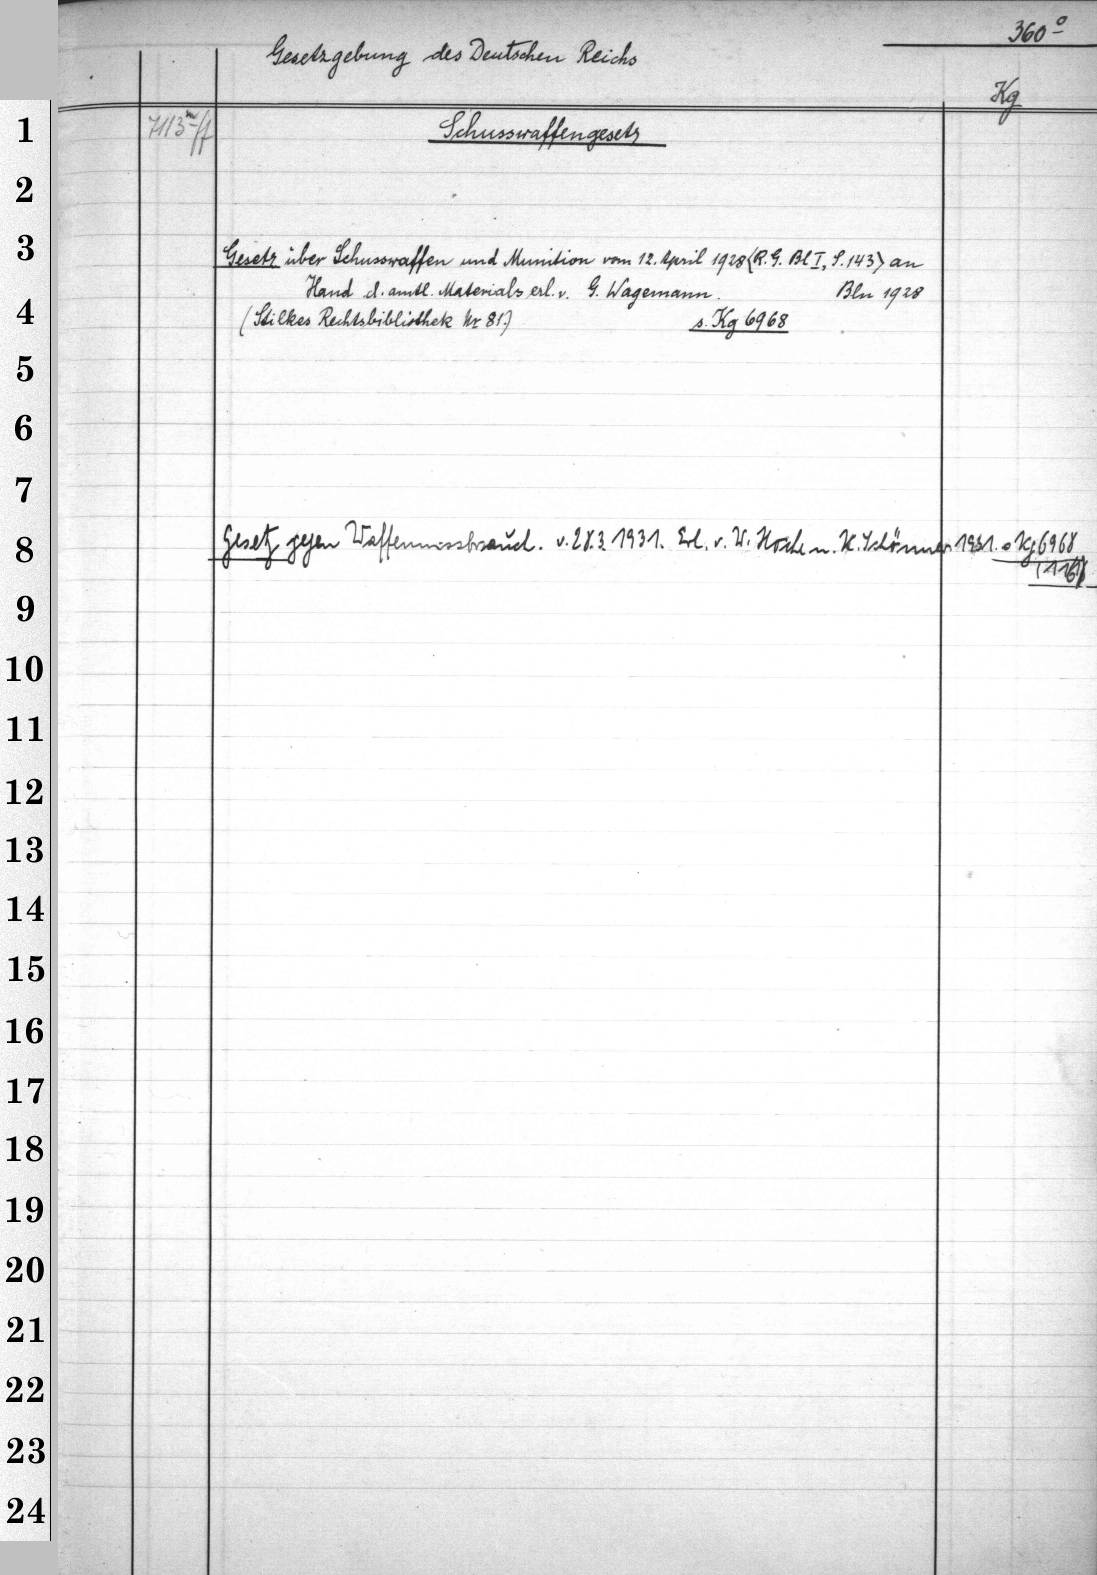 360º
Gesetzgebung des Deutschen Reichs
Kg
Schusswaffengesetz
Gesetz über Schusswaffen und Munition vom 12. April 1928 (R. G. Bl I, S. 143) an
Hand d. amtl. Materials erl. v. G. Wagemann. Bln 1928
(Stilkes Rechtsbibliothek Nr 81.) s. Kg 6968
Gesetz gegen Waffenmissbrauch. v. 28.3. 1931. Erl. v. W. Hoche u. K. Schönner 1931. s Kg 6968
(116)
1
2
3
4
5
6
7
8
9
10
11
12
13
14
15
16
17
18
19
20
21
22
23
24